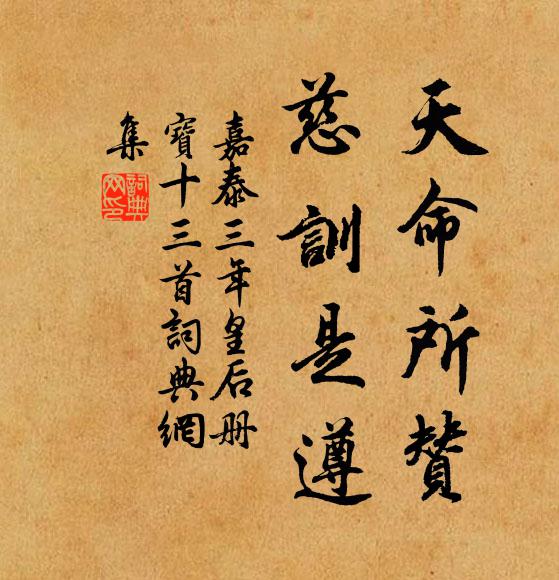 天命所贊
慈訓是遵
嘉泰三年皇后册
寶十三首詞典網
集
詞典网印